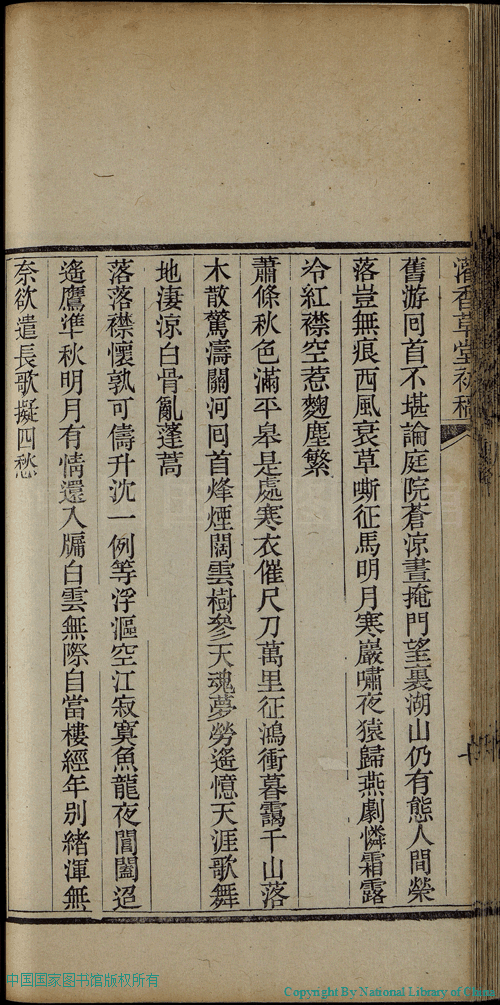 灌香草堂初稿
舊游回首不堪論庭院蒼涼晝掩門望裏湖山仍有態人間榮
落豈無痕西風衰草嘶征馬明月寒巖嘯夜猿歸燕劇憐霜露
冷紅襟空惹麴塵繁
蕭條秋色滿平皋是處寒衣催尺刀萬里征鴻衝暮靄千山落
木散驚濤關河回首烽煙闊雲樹參天魂夢勞遙憶天涯歌舞
地淒涼白骨亂蓬蒿
落落襟懷孰可儔升沈一例等浮漚空江寂寞魚龍夜閶闔迢
遙鷹準秋明月有情還入牖白雲無際自當樓經年別緒渾無
奈欲遣長歌擬四愁
中国国家图书馆版权所有
Copyright By National Library of China